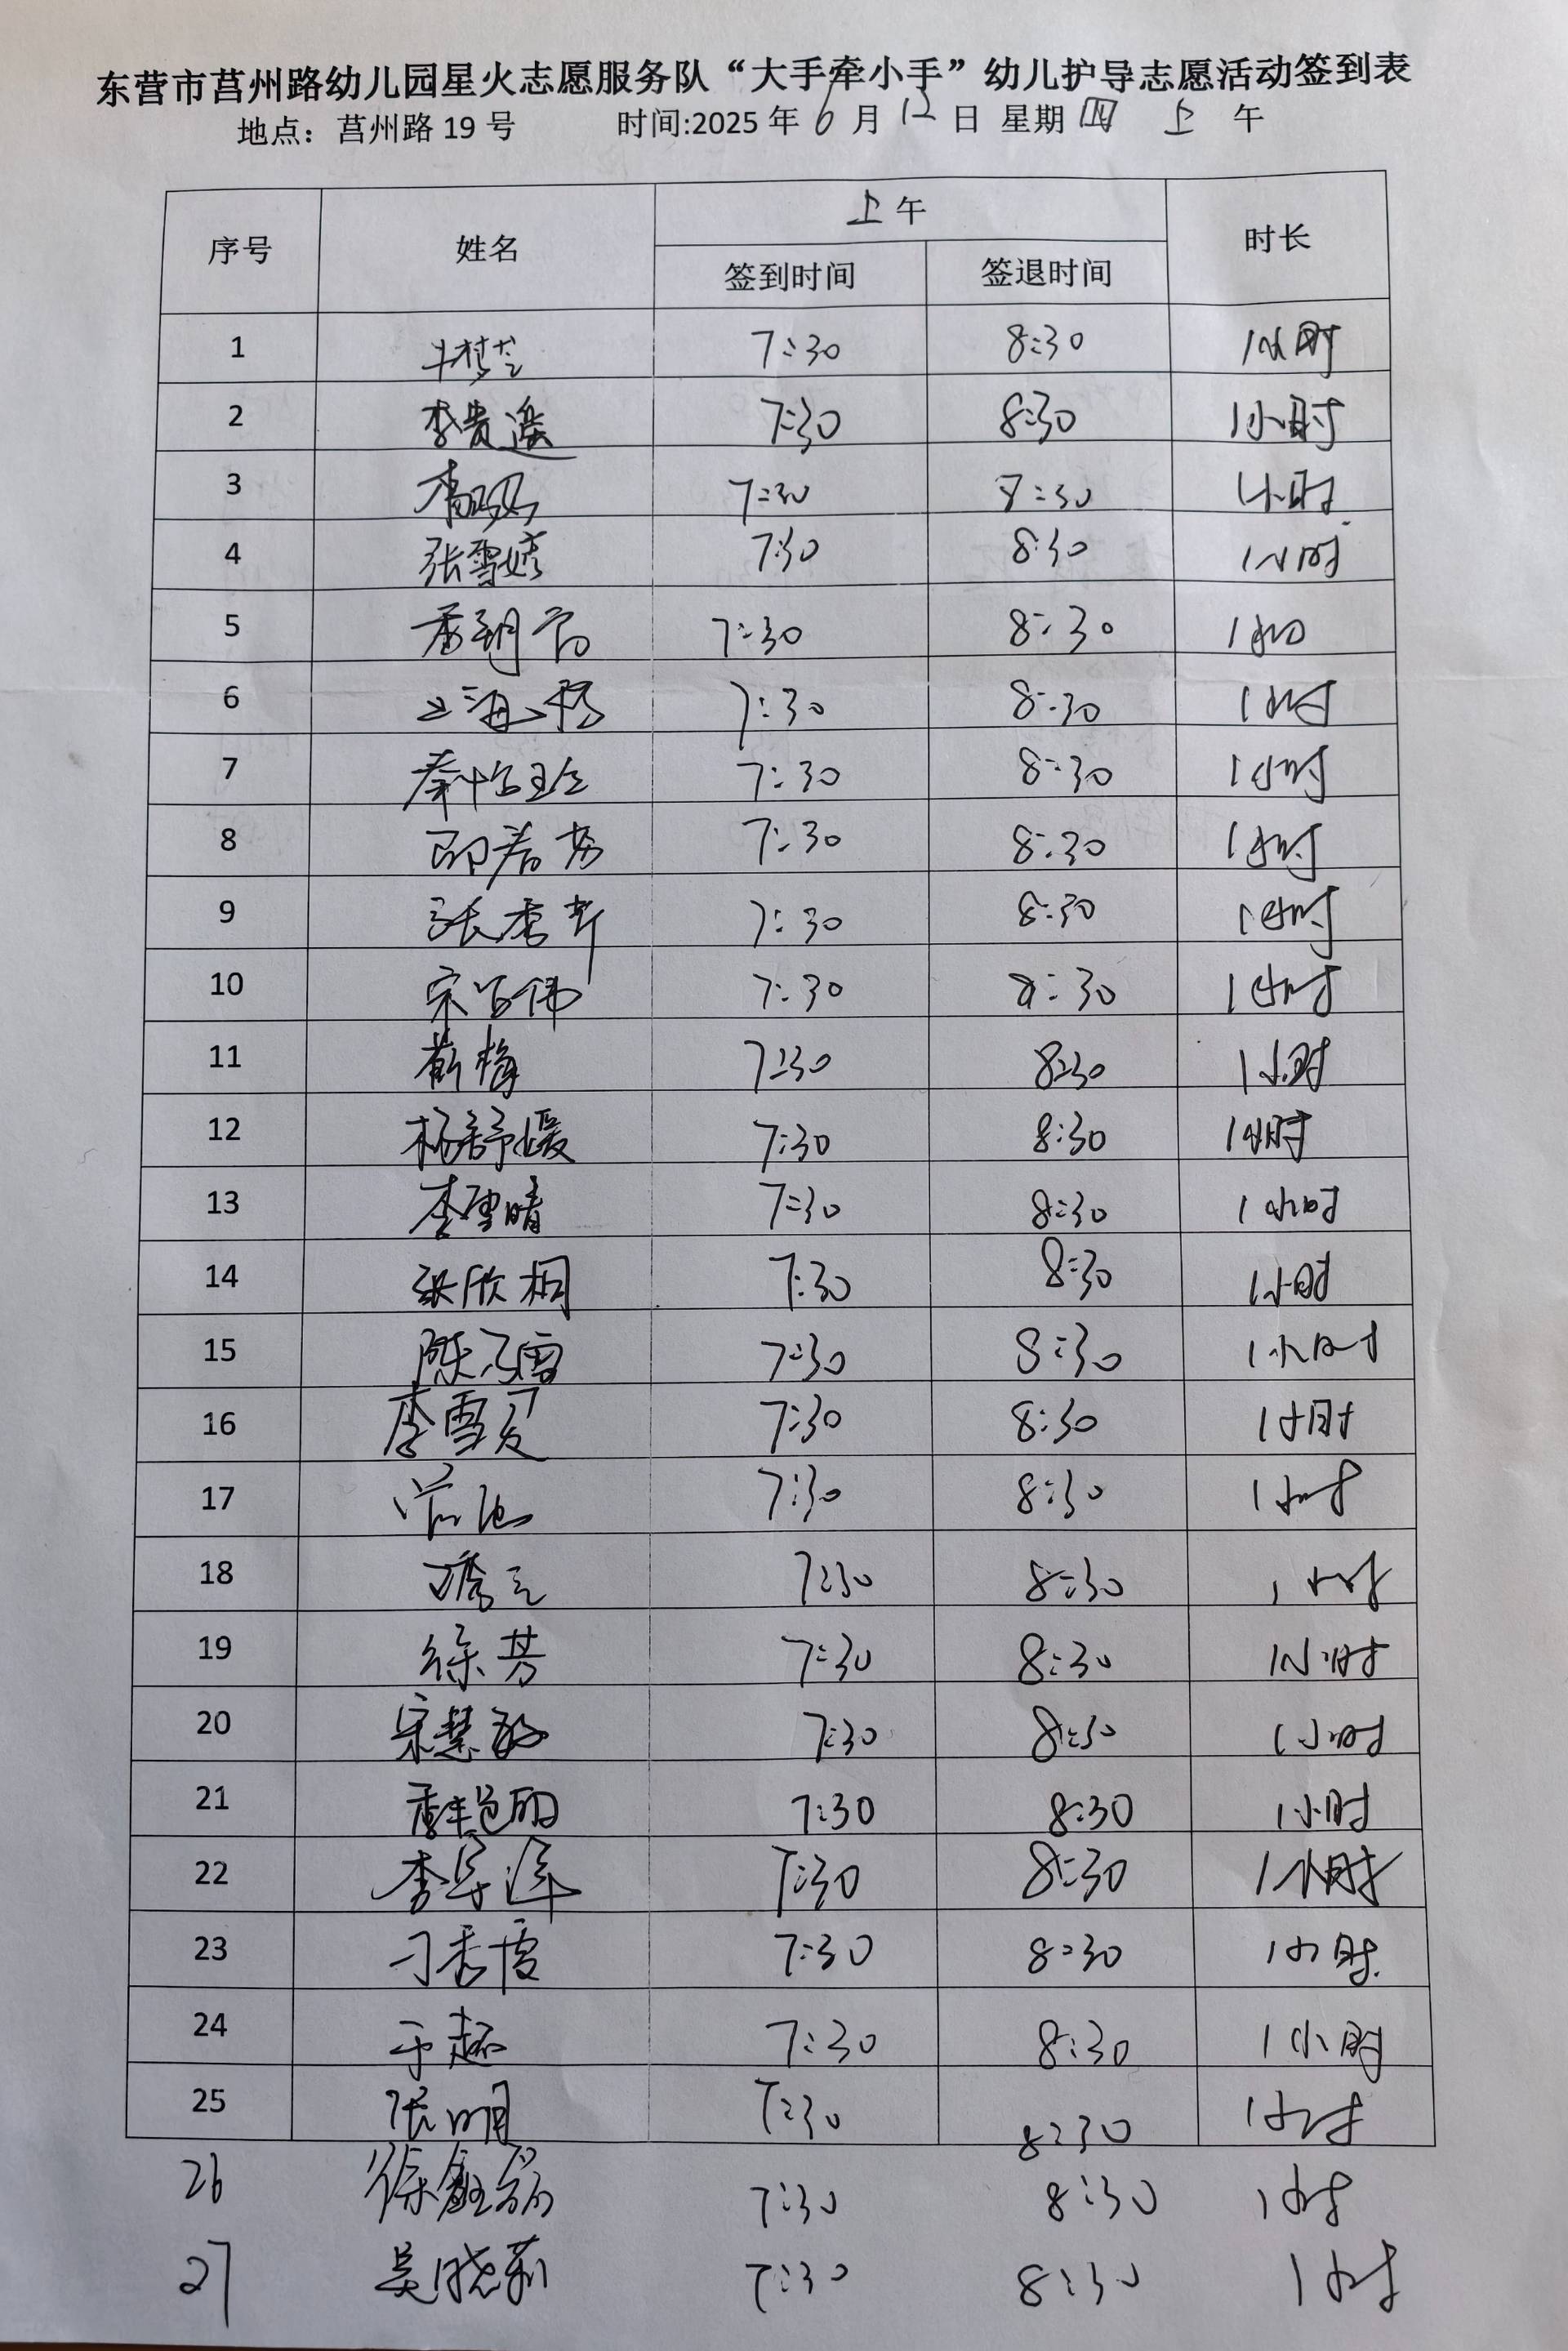 东营市莒州路幼儿园星火志愿服务队“大手牵小手”幼儿护导志愿活动签到表
地点：莒州路 19 号 时间:2025 年 6 月 12 日 星期 四 上 午
序号 姓名 上午 时长
签到时间 签退时间
1 7:30 8:30 1小时
2 李贵遥 7:30 8:30 1小时
3 7:30 8:30 1小时
4 张雪婷 7:30 8:30 1小时
5 7:30 8:30 1小时
6 7:30 8:30 1小时
7 7:30 8:30 1小时
8 7:30 8:30 1小时
9 7:30 8:30 1小时
10 7:30 8:30 1小时
11 靳梅 7:30 8:30 1小时
12 杨舒媛 7:30 8:30 1小时
13 李雪晴 7:30 8:30 1小时
14 张欣桐 7:30 8:30 1小时
15 7:30 8:30 1小时
16 7:30 8:30 1小时
17 7:30 8:30 1小时
18 7:30 8:30 1小时
19 徐芳 7:30 8:30 1小时
20 宋慧敏 7:30 8:30 1小时
21 7:30 8:30 1小时
22 7:30 8:30 1小时
23 刁秀霞 7:30 8:30 1小时
24 于超 7:30 8:30 1小时
25 张明 7:30 8:30 1小时
26 7:30 8:30 1小时
27 吴晓莉 7:30 8:30 1小时